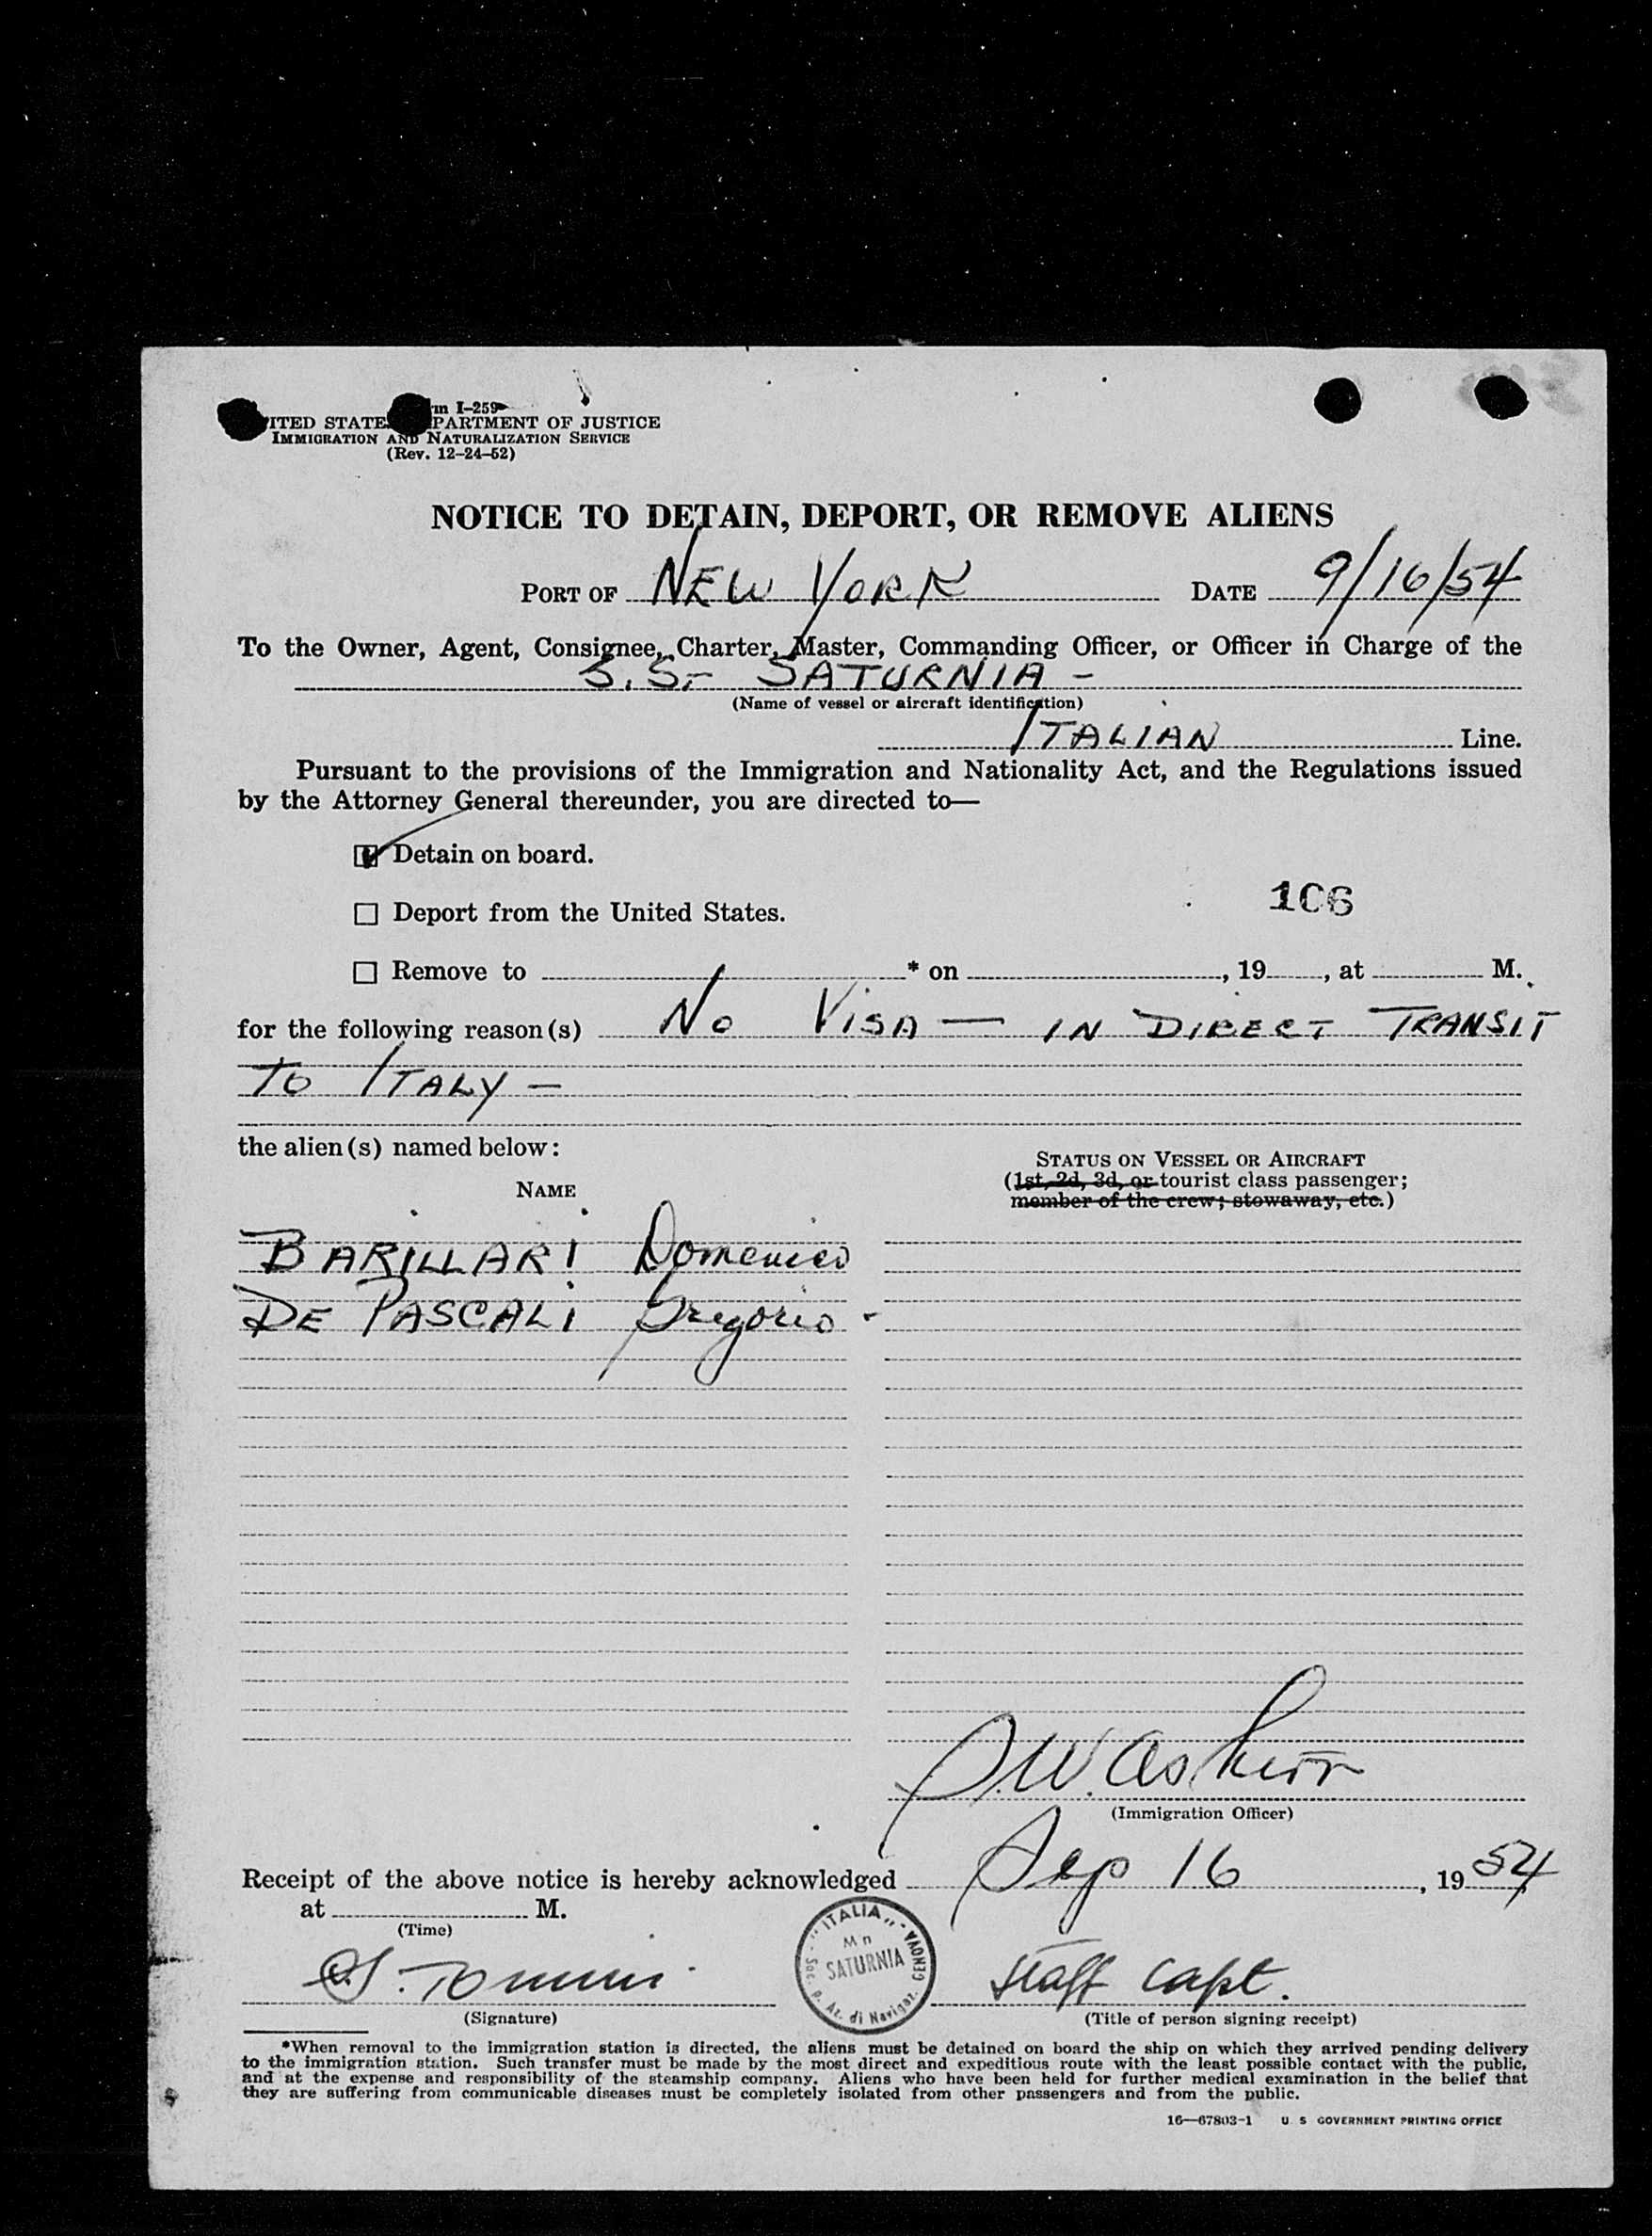 m I-259
ITED STATE PARTMENT OF JUSTICE
IMMIGRATION AND NATURALIZATION SERVICE
(Rev. 12-24-52)
NOTICE TO DETAIN, DEPORT, OR REMOVE ALIENS
PORT OF NEW YORK DATE 9/16/54
To the Owner, Agent, Consignee, Charter, Master, Commanding Officer, or Officer in Charge of the
S.S. SATURNIA -
(Name of vessel or aircraft identification)
ITALIAN Line.
Pursuant to the provisions of the Immigration and Nationality Act, and the Regulations issued
by the Attorney General thereunder, you are directed to—
Detain on board.
106
Deport from the United States.
Remove to * on , 19 , at M.
for the following reason(s) NO VISA — IN DIRECT TRANSIT
TO ITALY —
the alien(s) named below:
STATUS ON VESSEL OR AIRCRAFT
NAME
(1st, 2d, 3d, or tourist class passenger;
member of the crew; stowaway, etc.)
BARILLARI Domenico
DE PASCALI Gregorio -
(Immigration Officer)
Receipt of the above notice is hereby acknowledged Sep 16, 1954
at M.
(Time)
"ITALIA" - GENOVA Soc. p. Az. di Navigaz.
Mn
SATURNIA
Staff Capt.
(Signature) (Title of person signing receipt)
*When removal to the immigration station is directed, the aliens must be detained on board the ship on which they arrived pending delivery
to the immigration station. Such transfer must be made by the most direct and expeditious route with the least possible contact with the public,
and at the expense and responsibility of the steamship company. Aliens who have been held for further medical examination in the belief that
they are suffering from communicable diseases must be completely isolated from other passengers and from the public.
16—67803-1 U S GOVERNMENT PRINTING OFFICE